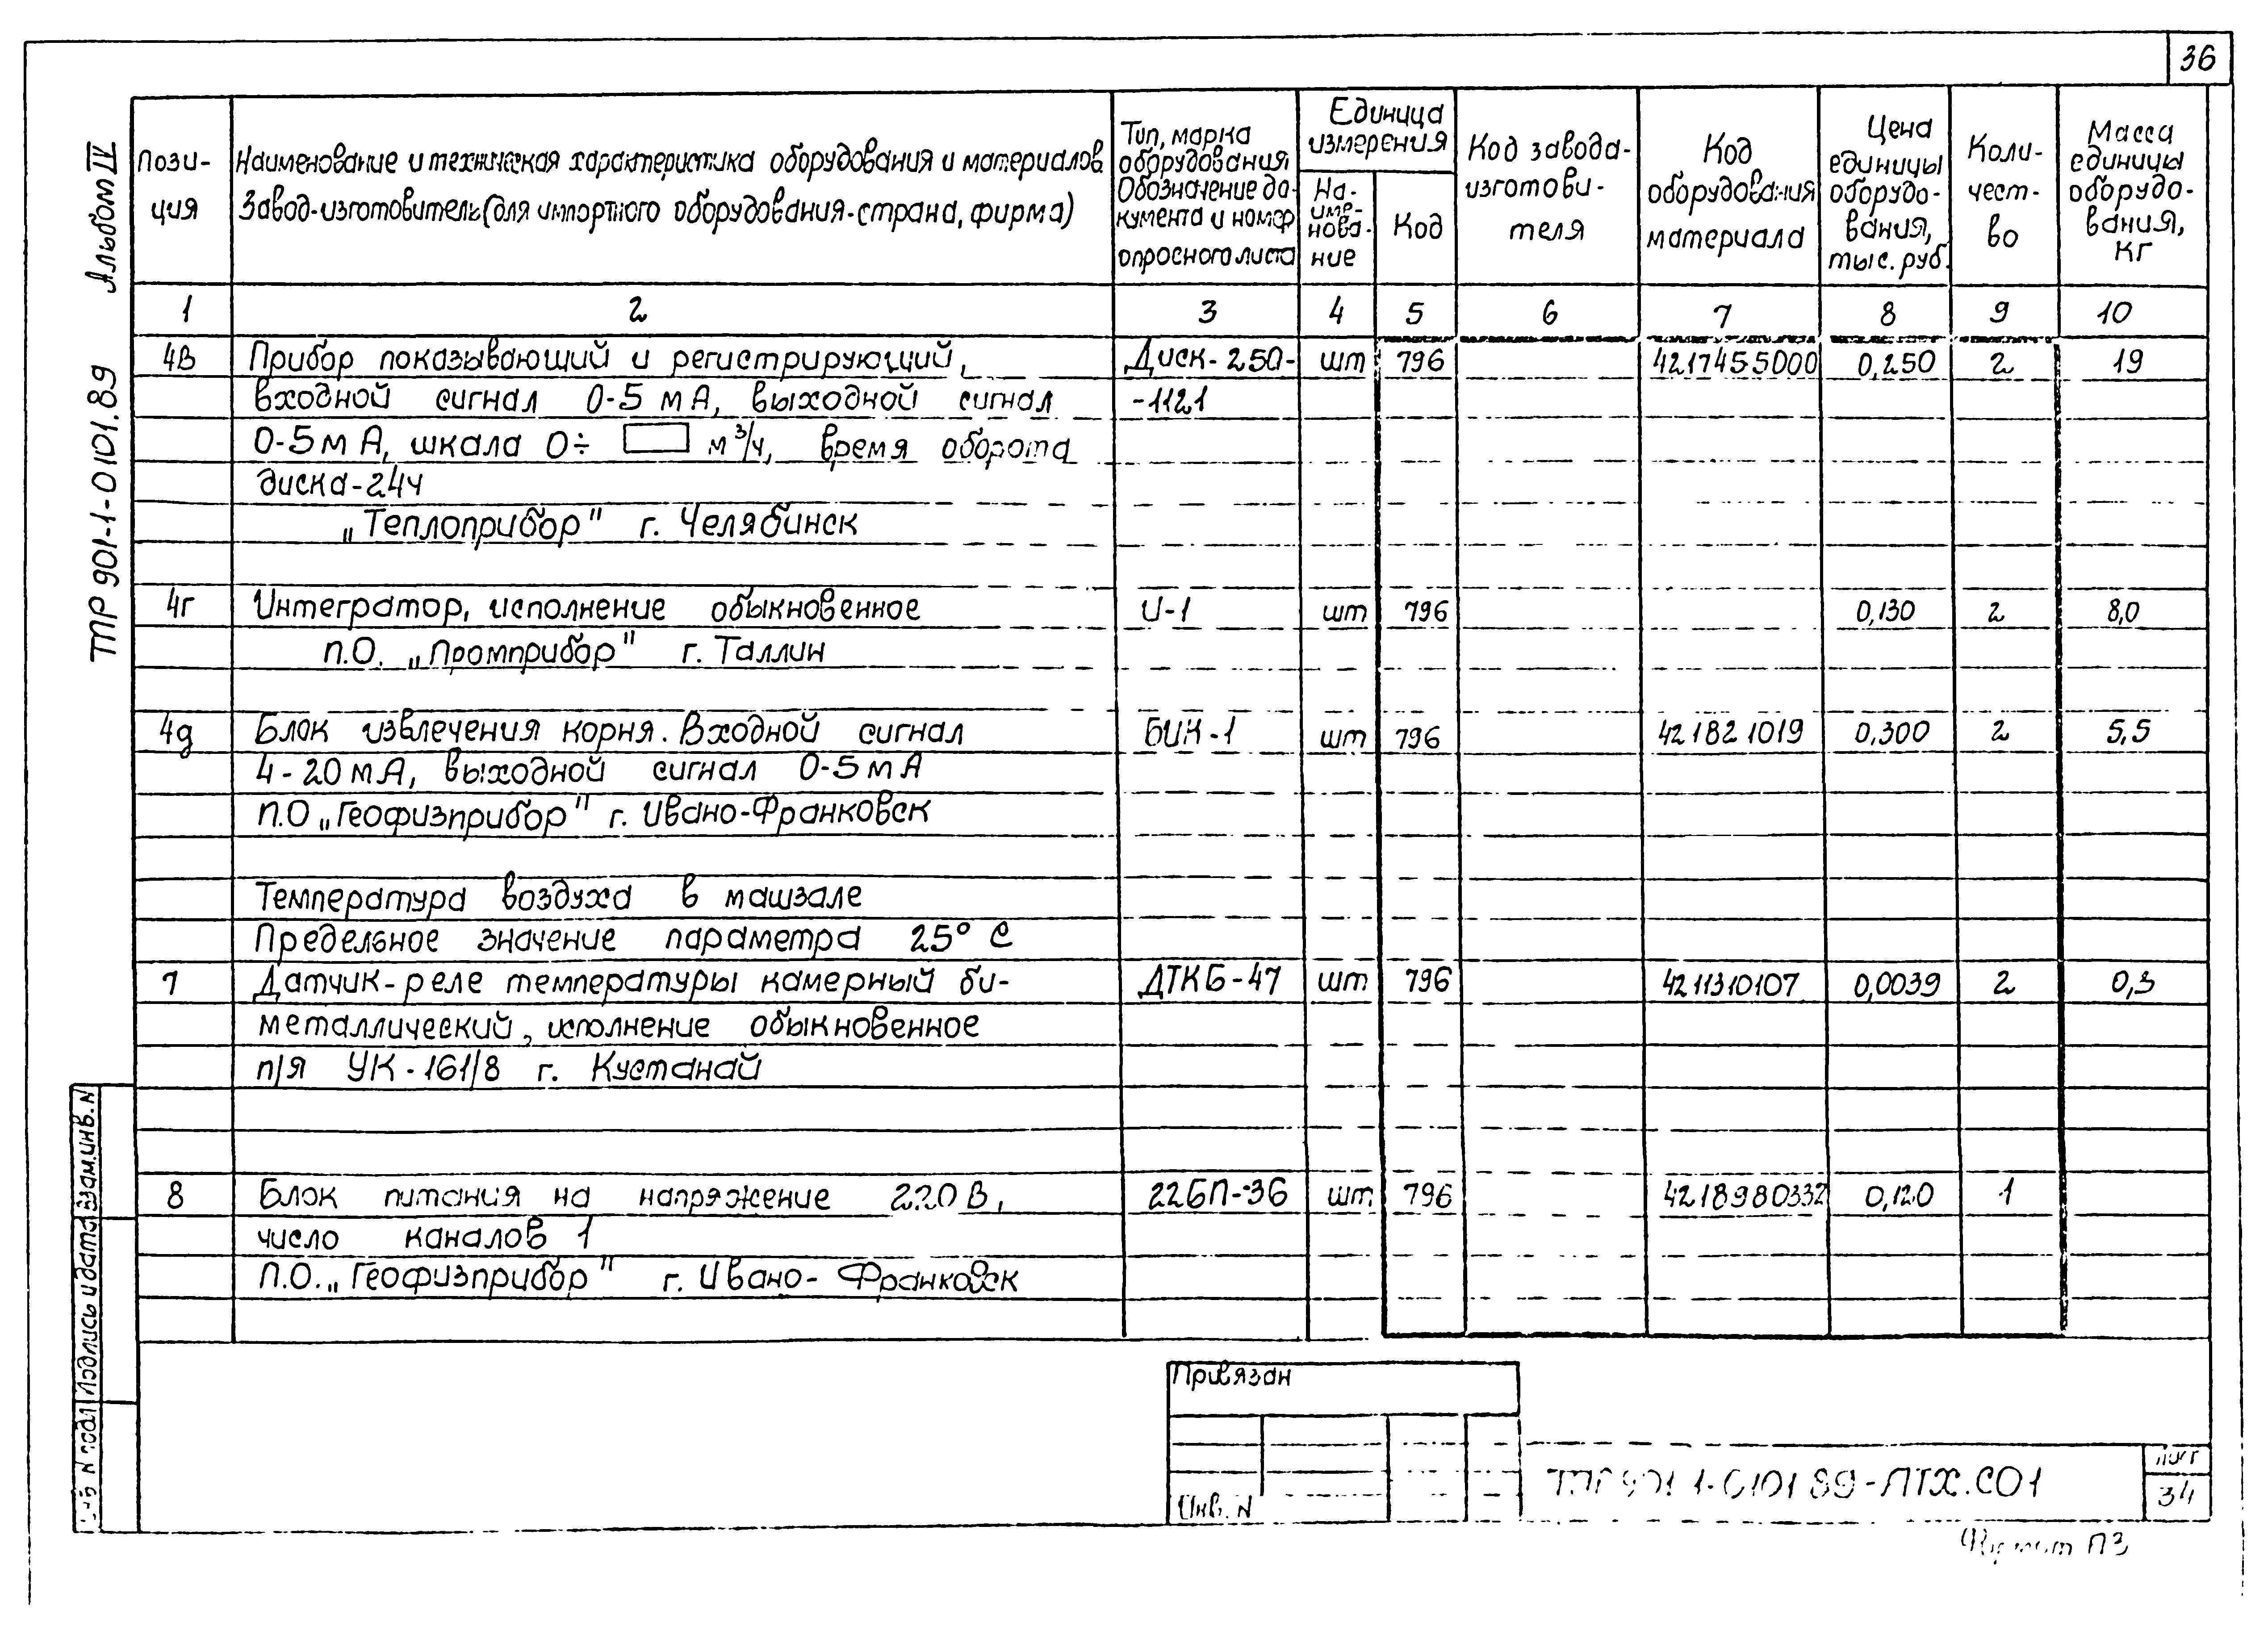 36
Альбом IV
ТПР 901-1-0101.89
Пози-
ция
Наименование и техническая характеристика оборудования и материалов
Завод-изготовитель (для импортного оборудования-страна, фирма)
Тип, марка
оборудования
Обозначение до-
кумента и номер
опросного листа
Единица
измерения
На-
име-
нова-
ние
Код
Код завода-
изготови-
теля
Код
оборудования
материала
Цена
единицы
оборудо-
вания,
тыс. руб.
Коли-
чест-
во
Масса
единицы
оборудо-
вания,
кг
1 2 3 4 5 6 7 8 9 10
4в Прибор показывающий и регистрирующий, Диск-250- шт 796 4217455000 0,250 2 19
входной сигнал 0-5 мА, выходной сигнал -1121
0-5 мА, шкала 0÷ м³/ч, время оборота
диска-24ч
„Теплоприбор" г. Челябинск
4г Интегратор, исполнение обыкновенное И-1 шт 796 0,130 2 8,0
П.О. „Промприбор" г. Таллин
4д Блок извлечения корня. Входной сигнал БИК-1 шт 796 42 1821019 0,300 2 5,5
4-20 мА, выходной сигнал 0-5 мА
П.О „Геофизприбор" г. Ивано-Франковск
Температура воздуха в машзале
Предельное значение параметра 25° С
7 Датчик-реле температуры камерный би- ДТКБ-47 шт 796 4211310107 0,0039 2 0,3
металлический, исполнение обыкновенное
п/я УК-161/8 г. Кустанай
8 Блок питания на напряжение 220 В, 22БП-36 шт 796 4218980332 0,120 1
число каналов 1
П.О. „Геофизприбор" г. Ивано-Франковск
Взам.инв.N
Подпись и дата
N подл
Привязан
Инв. N
ТПР 901-1-0101.89-ПТХ.СО1
Лист
34
Формат